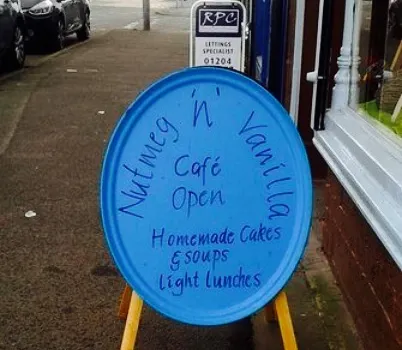 RPC
LETTINGS
SPECIALIST
01204
Nutmeg 'n' Vanilla
Café
Open
Homemade Cakes
& Soups
Light Lunches